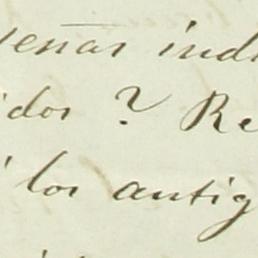 señas indi
idos ? Re
los antig